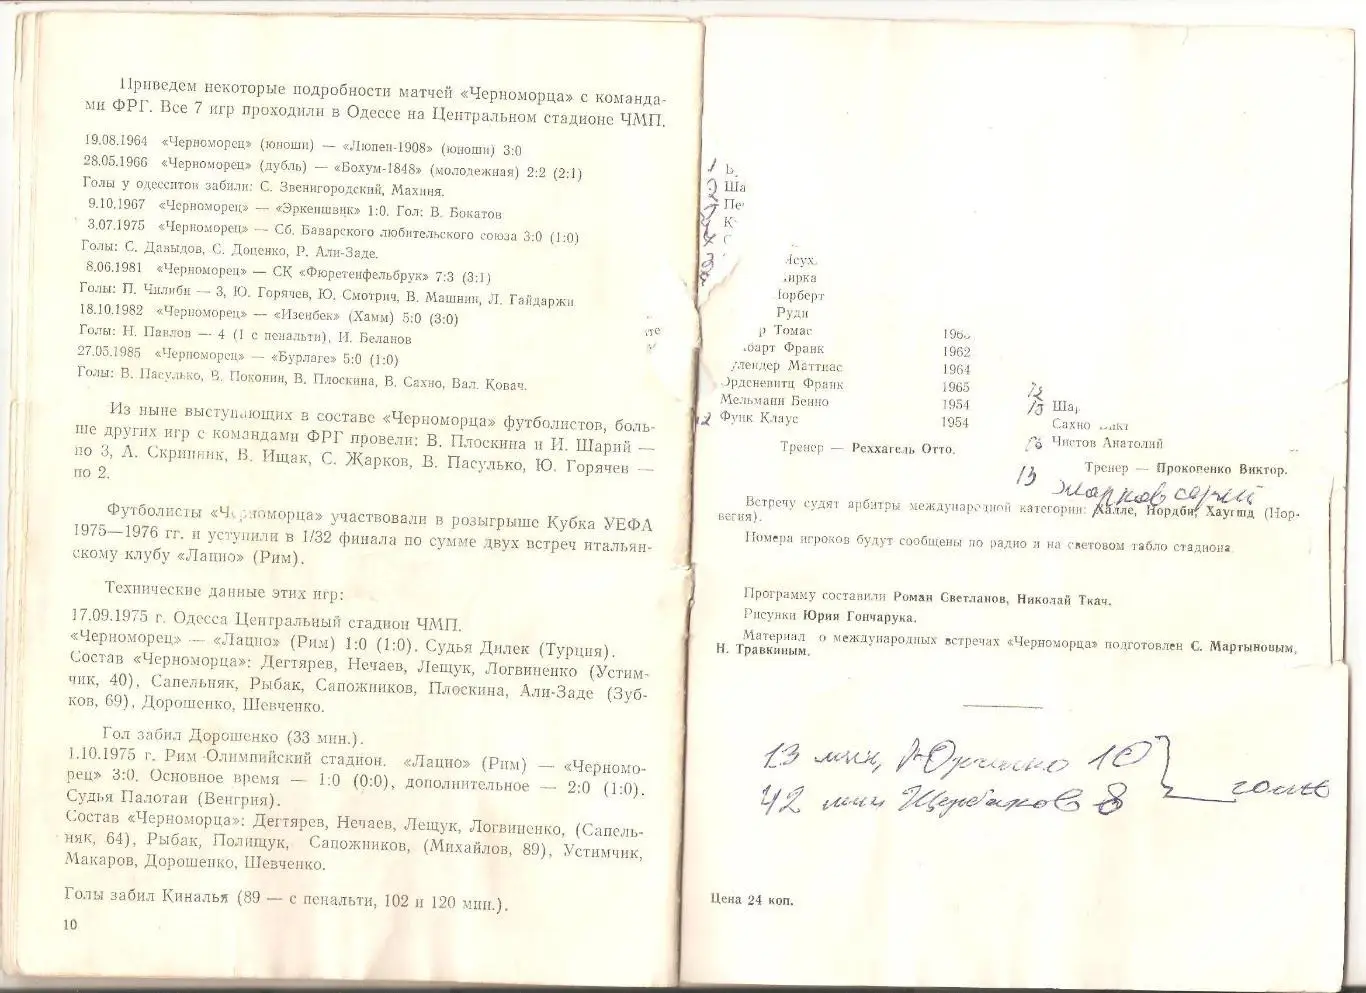 Приведем некоторые подробности матчей «Черноморца» с команда-
ми ФРГ. Все 7 игр проходили в Одессе на Центральном стадионе ЧМП.
19.08.1964 «Черноморец» (юноши) — «Люпен-1908» (юноши) 3:0
28.05.1966 «Черноморец» (дубль) — «Бохум-1848» (молодежная) 2:2 (2:1)
Голы у одесситов забили: С. Звенигородский, Махиня.
9.10.1967 «Черноморец» — «Эркеншвик» 1:0. Гол: В. Бокатов
3.07.1975 «Черноморец» — Сб. Баварского любительского союза 3:0 (1:0)
Голы: С. Давыдов, С. Доценко, Р. Али-Заде.
8.06.1981 «Черноморец» — СК «Фюретенфельбрук» 7:3 (3:1)
Голы: П. Чилиби — 3, Ю. Горячев, Ю. Смотрич, В. Машнин, Л. Гайдаржи
18.10.1982 «Черноморец» — «Изенбек» (Хамм) 5:0 (3:0)
Голы: Н. Павлов — 4 (1 с пенальти), И. Беланов
27.05.1985 «Черноморец» — «Бурлаге» 5:0 (1:0)
Голы: В. Пасулько, В. Поконин, В. Плоскина, В. Сахно, Вал. Ковач.
Из ныне выступающих в составе «Черноморца» футболистов, боль-
ше других игр с командами ФРГ провели: В. Плоскина и И. Шарий —
по 3, А. Скрипник, В. Ищак, С. Жарков, В. Пасулько, Ю. Горячев —
по 2.
Футболисты «Черноморца» участвовали в розыгрыше Кубка УЕФА
1975—1976 гг. и уступили в 1/32 финала по сумме двух встреч итальян-
скому клубу «Лацио» (Рим).
Технические данные этих игр:
17.09.1975 г. Одесса Центральный стадион ЧМП.
«Черноморец» — «Лацио» (Рим) 1:0 (1:0). Судья Дилек (Турция).
Состав «Черноморца»: Дегтярев, Нечаев, Лещук, Логвиненко (Устим-
чик, 40), Сапельняк, Рыбак, Сапожников, Плоскина, Али-Заде (Зуб-
ков, 69), Дорошенко, Шевченко.
Гол забил Дорошенко (33 мин.).
1.10.1975 г. Рим Олимпийский стадион. «Лацио» (Рим) — «Черномо-
рец» 3:0. Основное время — 1:0 (0:0), дополнительное — 2:0 (1:0).
Судья Палотаи (Венгрия).
Состав «Черноморца»: Дегтярев, Нечаев, Лещук, Логвиненко, (Сапель-
няк, 64), Рыбак, Полищук, Сапожников, (Михайлов, 89), Устимчик,
Макаров, Дорошенко, Шевченко.
Голы забил Киналья (89 — с пенальти, 102 и 120 мин.).
10
Ша
Пе
ирка
орберт
Руди
р Томас
барт Франк 1962
улендер Маттиас 1964
Орденевитц Франк 1965
Мельманн Бенно 1954
Функ Клаус 1954
Тренер — Реххагель Отто.
Шар
Сахно
Чистов Анатолий
Тренер — Прокопенко Виктор.
13 Жарков Сергей
Встречу судят арбитры международной категории: Халле, Нордби, Хаугшд (Нор-
вегия).
Номера игроков будут сообщены по радио и на световом табло стадиона
Программу составили Роман Светланов, Николай Ткач.
Рисунки Юрия Гончарука.
Материал о международных встречах «Черноморца» подготовлен С. Мартыновым,
Н. Травкиным.
13 мин, Юрченко 10
42 мин Щербаков 8
голы
Цена 24 коп.